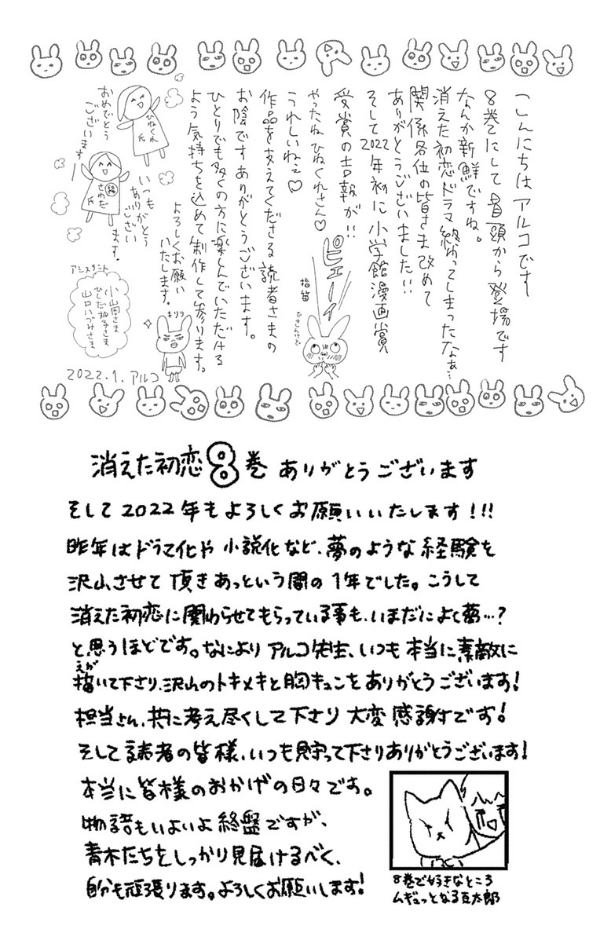 こんにちはアルコです
8巻にして冒頭から登場です
なんか新鮮ですね。
消えた初恋ドラマ終わってしまったなぁ…
関係各位の皆さま改めて
ありがとうございました!!
そして2022年初めに小学館漫画賞
受賞の吉報が!!
やったねひねくれさん♡
うれしいねぇ♡
ピューイ
指笛
作品を支えてくださる読者さまの
お陰ですありがとうございます。
ひとりでも多くの方に楽しんでいただける
よう気持ちを込めて制作して参ります。
よろしくお願い
いたします。
キリッ
ひねくれ氏
おめでとう
ございます!
いつも
ありがとう
ござい
ます。
アシスタント
小山田さま
山口いづみさま
2022.1.アルコ
消えた初恋8巻ありがとうございます
そして2022年もよろしくお願いいたします!!!
昨年はドラマ化や小説化など、夢のような経験を
沢山させて頂きあっという間の1年でした。こうして
消えた初恋に関わらせてもらっている事も、いまだによく夢…?
と思うほどです。なによりアルコ先生、いつも本当に素敵に
描いて下さり、沢山のトキメキと胸キュンをありがとうございます!
えが
担当さん、共に考え尽くして下さり大変感謝です!
そして読者の皆様、いつも見守って下さりありがとうございます!
本当に皆様のおかげの日々です。
物語もいよいよ終盤ですが、
青木たちをしっかり見届けるべく、
自分も頑張ります。よろしくお願いします!
8巻で好きなところ
ムギュッとなる豆太郎